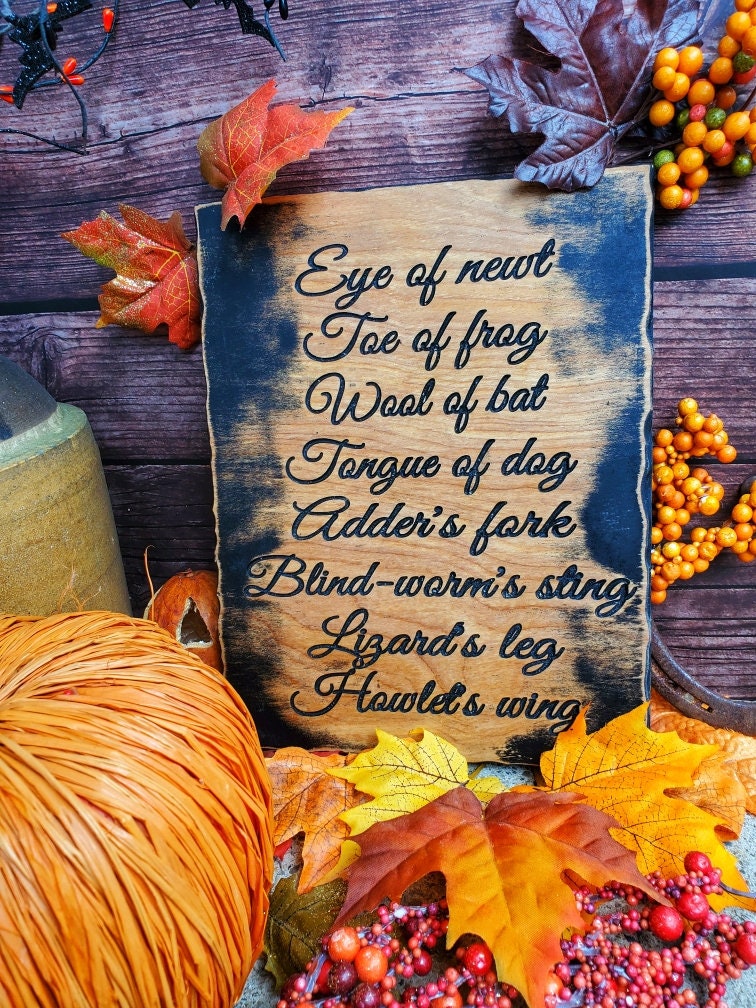 Eye of newt
Toe of frog
Wool of bat
Tongue of dog
Adder's fork
Blind-worm's sting
Lizard's leg
Howlet's wing